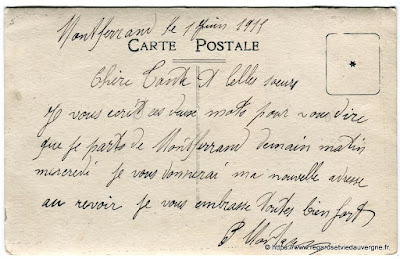 Montferrand le 1 Juin 1911
CARTE POSTALE
Chère Tante et belles sœurs
Je vous ecrit ces deux mots pour vous dire
que je parts de Montferrand demain matin
mercredi je vous donnerai ma nouvelle adresse
au revoir je vous embrasse toutes bien fort
P
© https://www.regardsetviedauvergne.fr